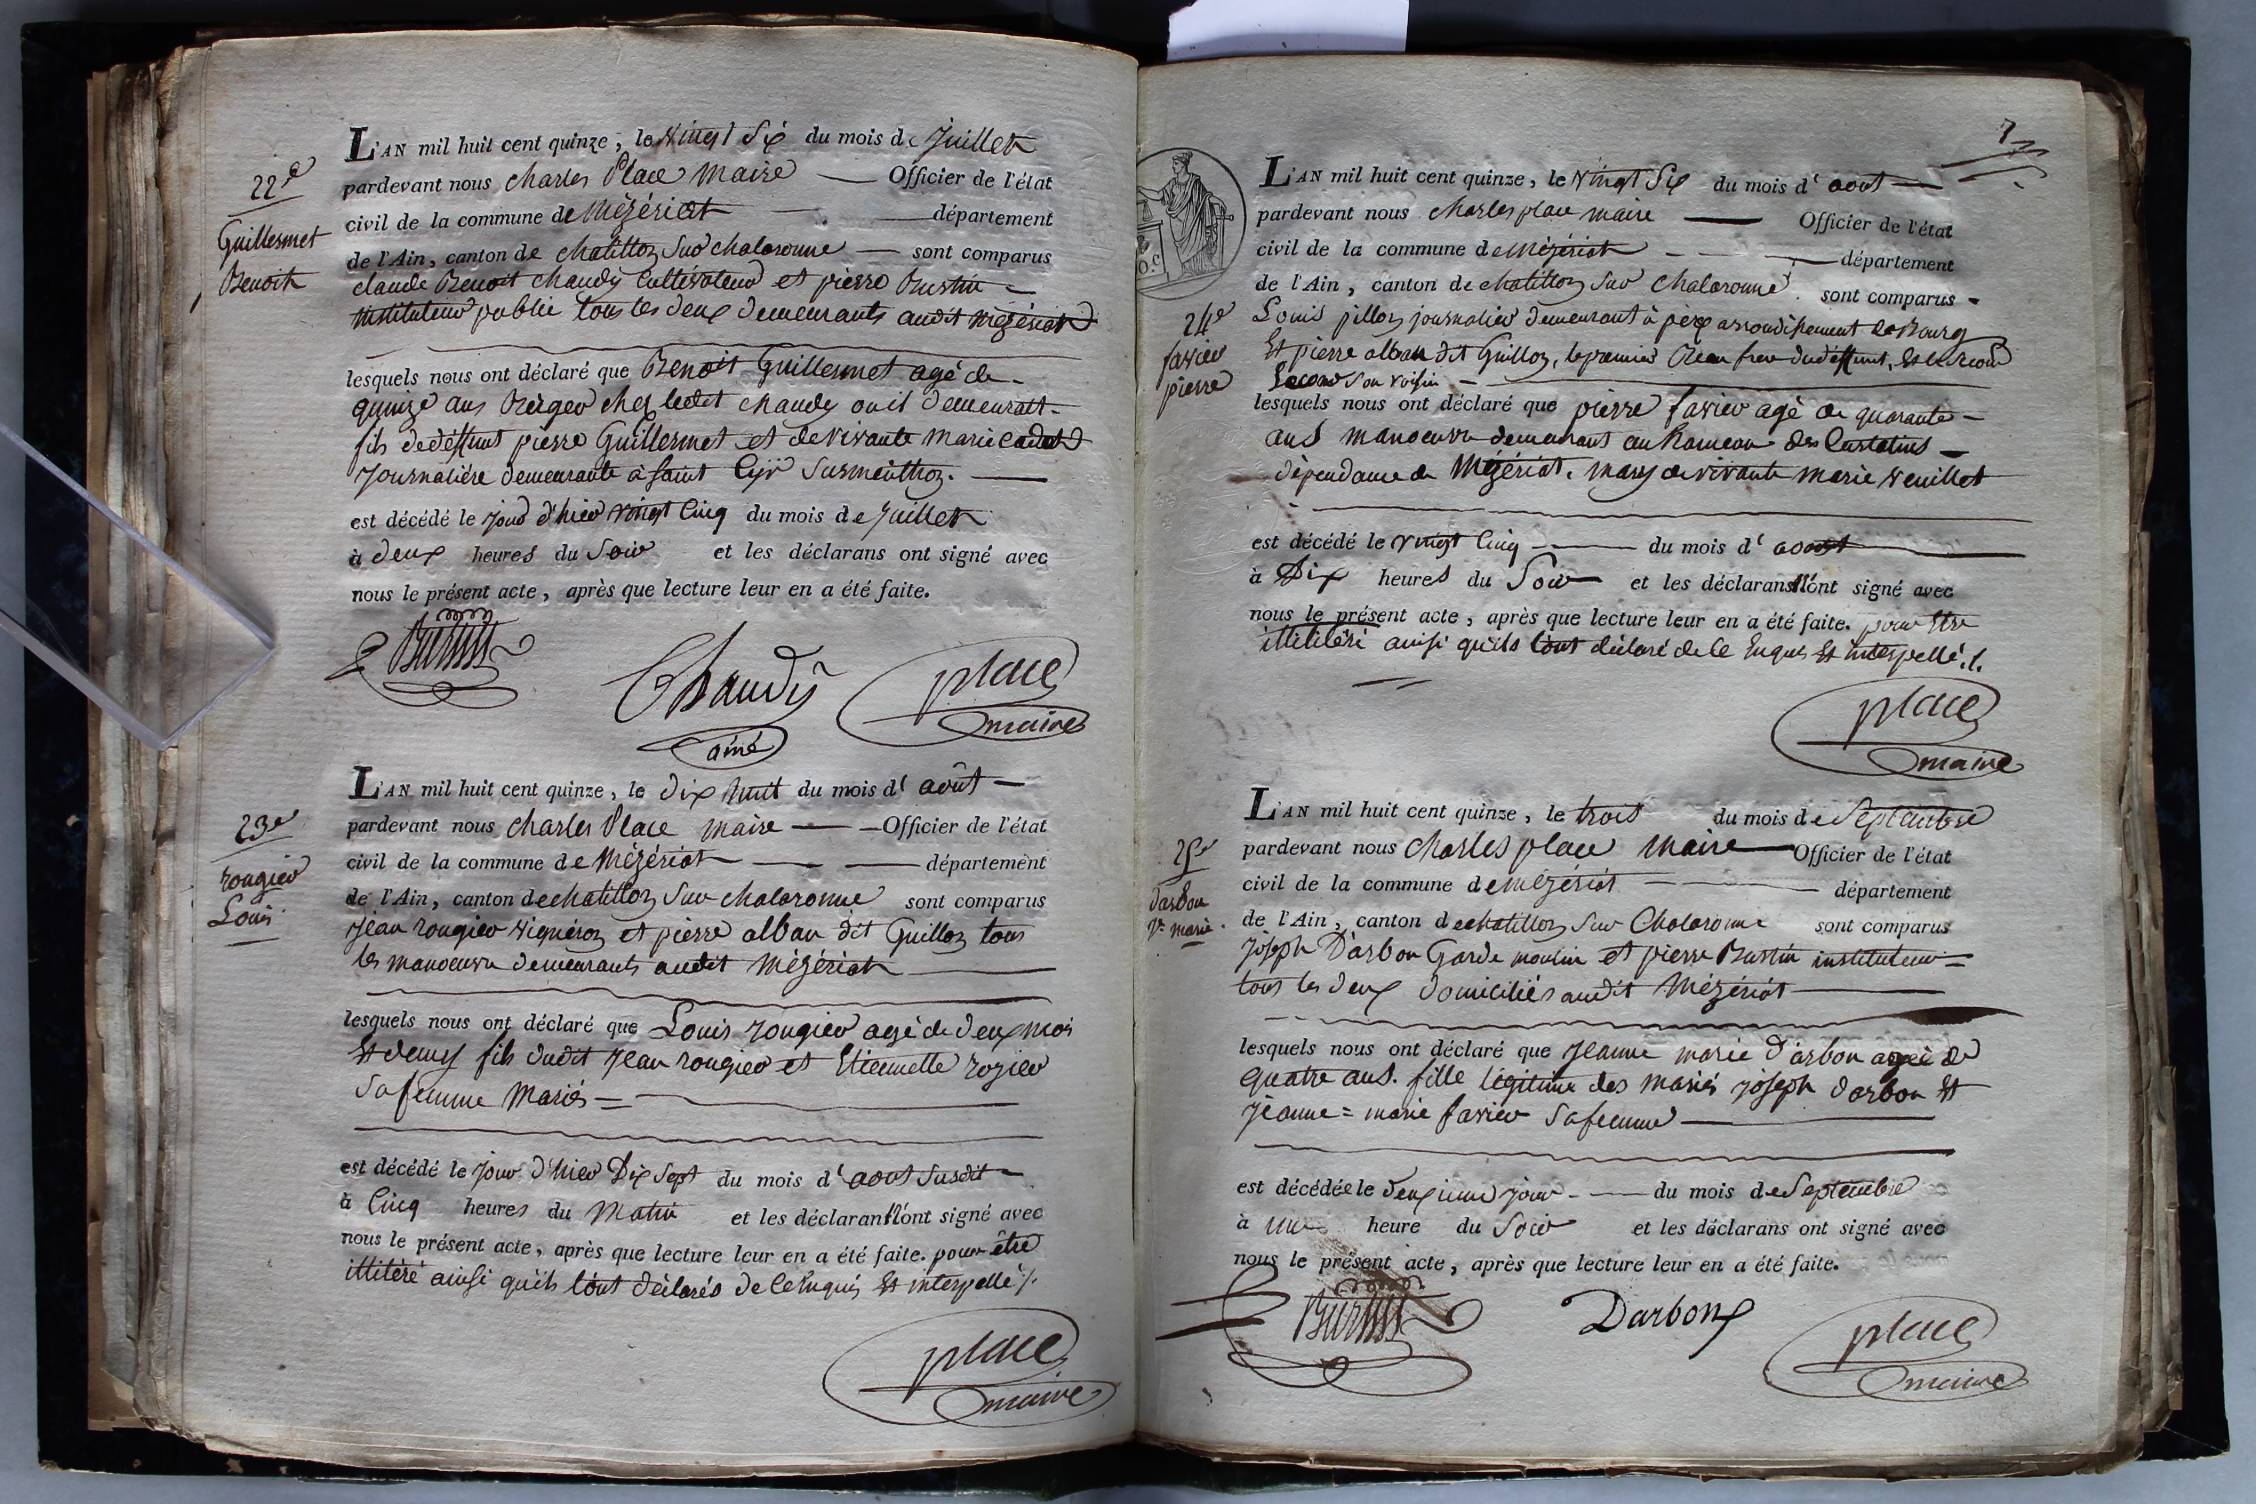 22e
Guillermet
Benoit
L'AN mil huit cent quinze, le vingt Six du mois de Juillet
pardevant nous charles Place Maire — Officier de l'état
civil de la commune de Mézériat — département
de l'Ain, canton de chatillon Sur chalaronne — sont comparus
claude Benoit chaudy Cultivateur et pierre Burtin
instituteur public tous les deux demeurants audit mézériat
lesquels nous ont déclaré que Benoit Guillermet agé de
quinze ans Berger chez ledit chaudy ou il demeurait
fils de déffunt pierre Guillermet et de vivante Marie cadet
Journalière demeurante à saint Cyr Surmenthon.
est décédé le jour d'hier vingt Cinq du mois de Juillet
à deux heures du Soir et les déclarans ont signé avec
nous le présent acte, après que lecture leur en a été faite.
Burtin Chaudy ainé place maire
23e
rougier
Louis
L'AN mil huit cent quinze, le dix huit du mois d' août —
pardevant nous charles Place maire — Officier de l'état
civil de la commune de Mézériat — département
de l'Ain, canton de chatillon Sur chalaronne sont comparus
Jean rougier vigneron et pierre alban dit Guillon tous
les manoeuvre demeurants audit Mézériat
lesquels nous ont déclaré que Louis rougier agé de deux mois
Et demy fils dudit Jean rougier et Etiennette rozier
Sa femme Mariés =
est décédé le jour d'hier Dix Sept du mois d' aout Susdit
à Cinq heures du Matin et les déclarans n'ont signé avec
nous le présent acte, après que lecture leur en a été faite. pour être
illitéré ainsi qu'ils l'ont déclarés de ce Enquis Et interpellé /.
place maire
7
24e
favier
pierre
L'AN mil huit cent quinze, le vingt Six du mois d' aout —
pardevant nous charles place maire — Officier de l'état
civil de la commune de Mézériat — département
de l'Ain, canton de chatillon Sur Chalaronne. sont comparus
Louis pillon journalier demeurant à arrondissement de Bourg
Et pierre alban dit Guillon, le premier Beau frere du déffunt, Et le Second
Second Son voisin —
lesquels nous ont déclaré que pierre favier agé de quarante
ans manoeuvre demeurant au hameau des
dépendance de Mézériat. mary de vivante Marie Veuillet
est décédé le vingt Cinq — du mois d' aoust
à Dix heures du Soir et les déclarans n'ont signé avec
nous le présent acte, après que lecture leur en a été faite. pour Etre
illitéré ainsi qu'ils l'ont déclaré de ce Enquis Et interpellé ./.
place maire
25e
darbon
Je marie
L'AN mil huit cent quinze, le trois du mois de Septembre
pardevant nous charles place Maire — Officier de l'état
civil de la commune de Mézériat — département
de l'Ain, canton de chatillon Sur Chalaronne sont comparus
joseph D'arbon Garde moulin et pierre Burtin instituteur =
tous les deux domiciliés audit Mézériat
lesquels nous ont déclaré que Jeanne marie D'arbon agée de
quatre ans. fille légitime des mariés joseph darbon Et
Jeanne = marie favier Sa femme
est décédée le deuxieme jour — du mois de Septembre
à une heure du Soir et les déclarans ont signé avec
nous le présent acte, après que lecture leur en a été faite.
Burtin Darbon place maire